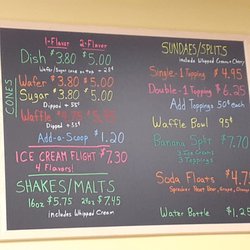 1-Flavor 2-Flavor
Dish $3.80 $5.00
Wafer/Sugar Cone on top + 25¢
CONES
Wafer $3.80 $5.00
Sugar $3.80 $5.00
Dipped + 55¢
Waffle $4.75 $5.95
Dipped + 55¢
Add-a-Scoop $1.20
ICE CREAM FLIGHT $7.30
4 Flavors!
SHAKES/MALTS
16oz $5.75 21oz $7.45
Includes Whipped Cream
SUNDAES/SPLITS
Include Whipped Cream + Cherry
Single-1 Topping $4.95
Double-1 Topping $6.25
Add Toppings 50¢ each
Waffle Bowl 95¢
Banana Split $7.70
3 Ice Creams
3 Toppings
Soda Floats $4.75
Sprecher Root Beer, Grape,
Water Bottle $1.25